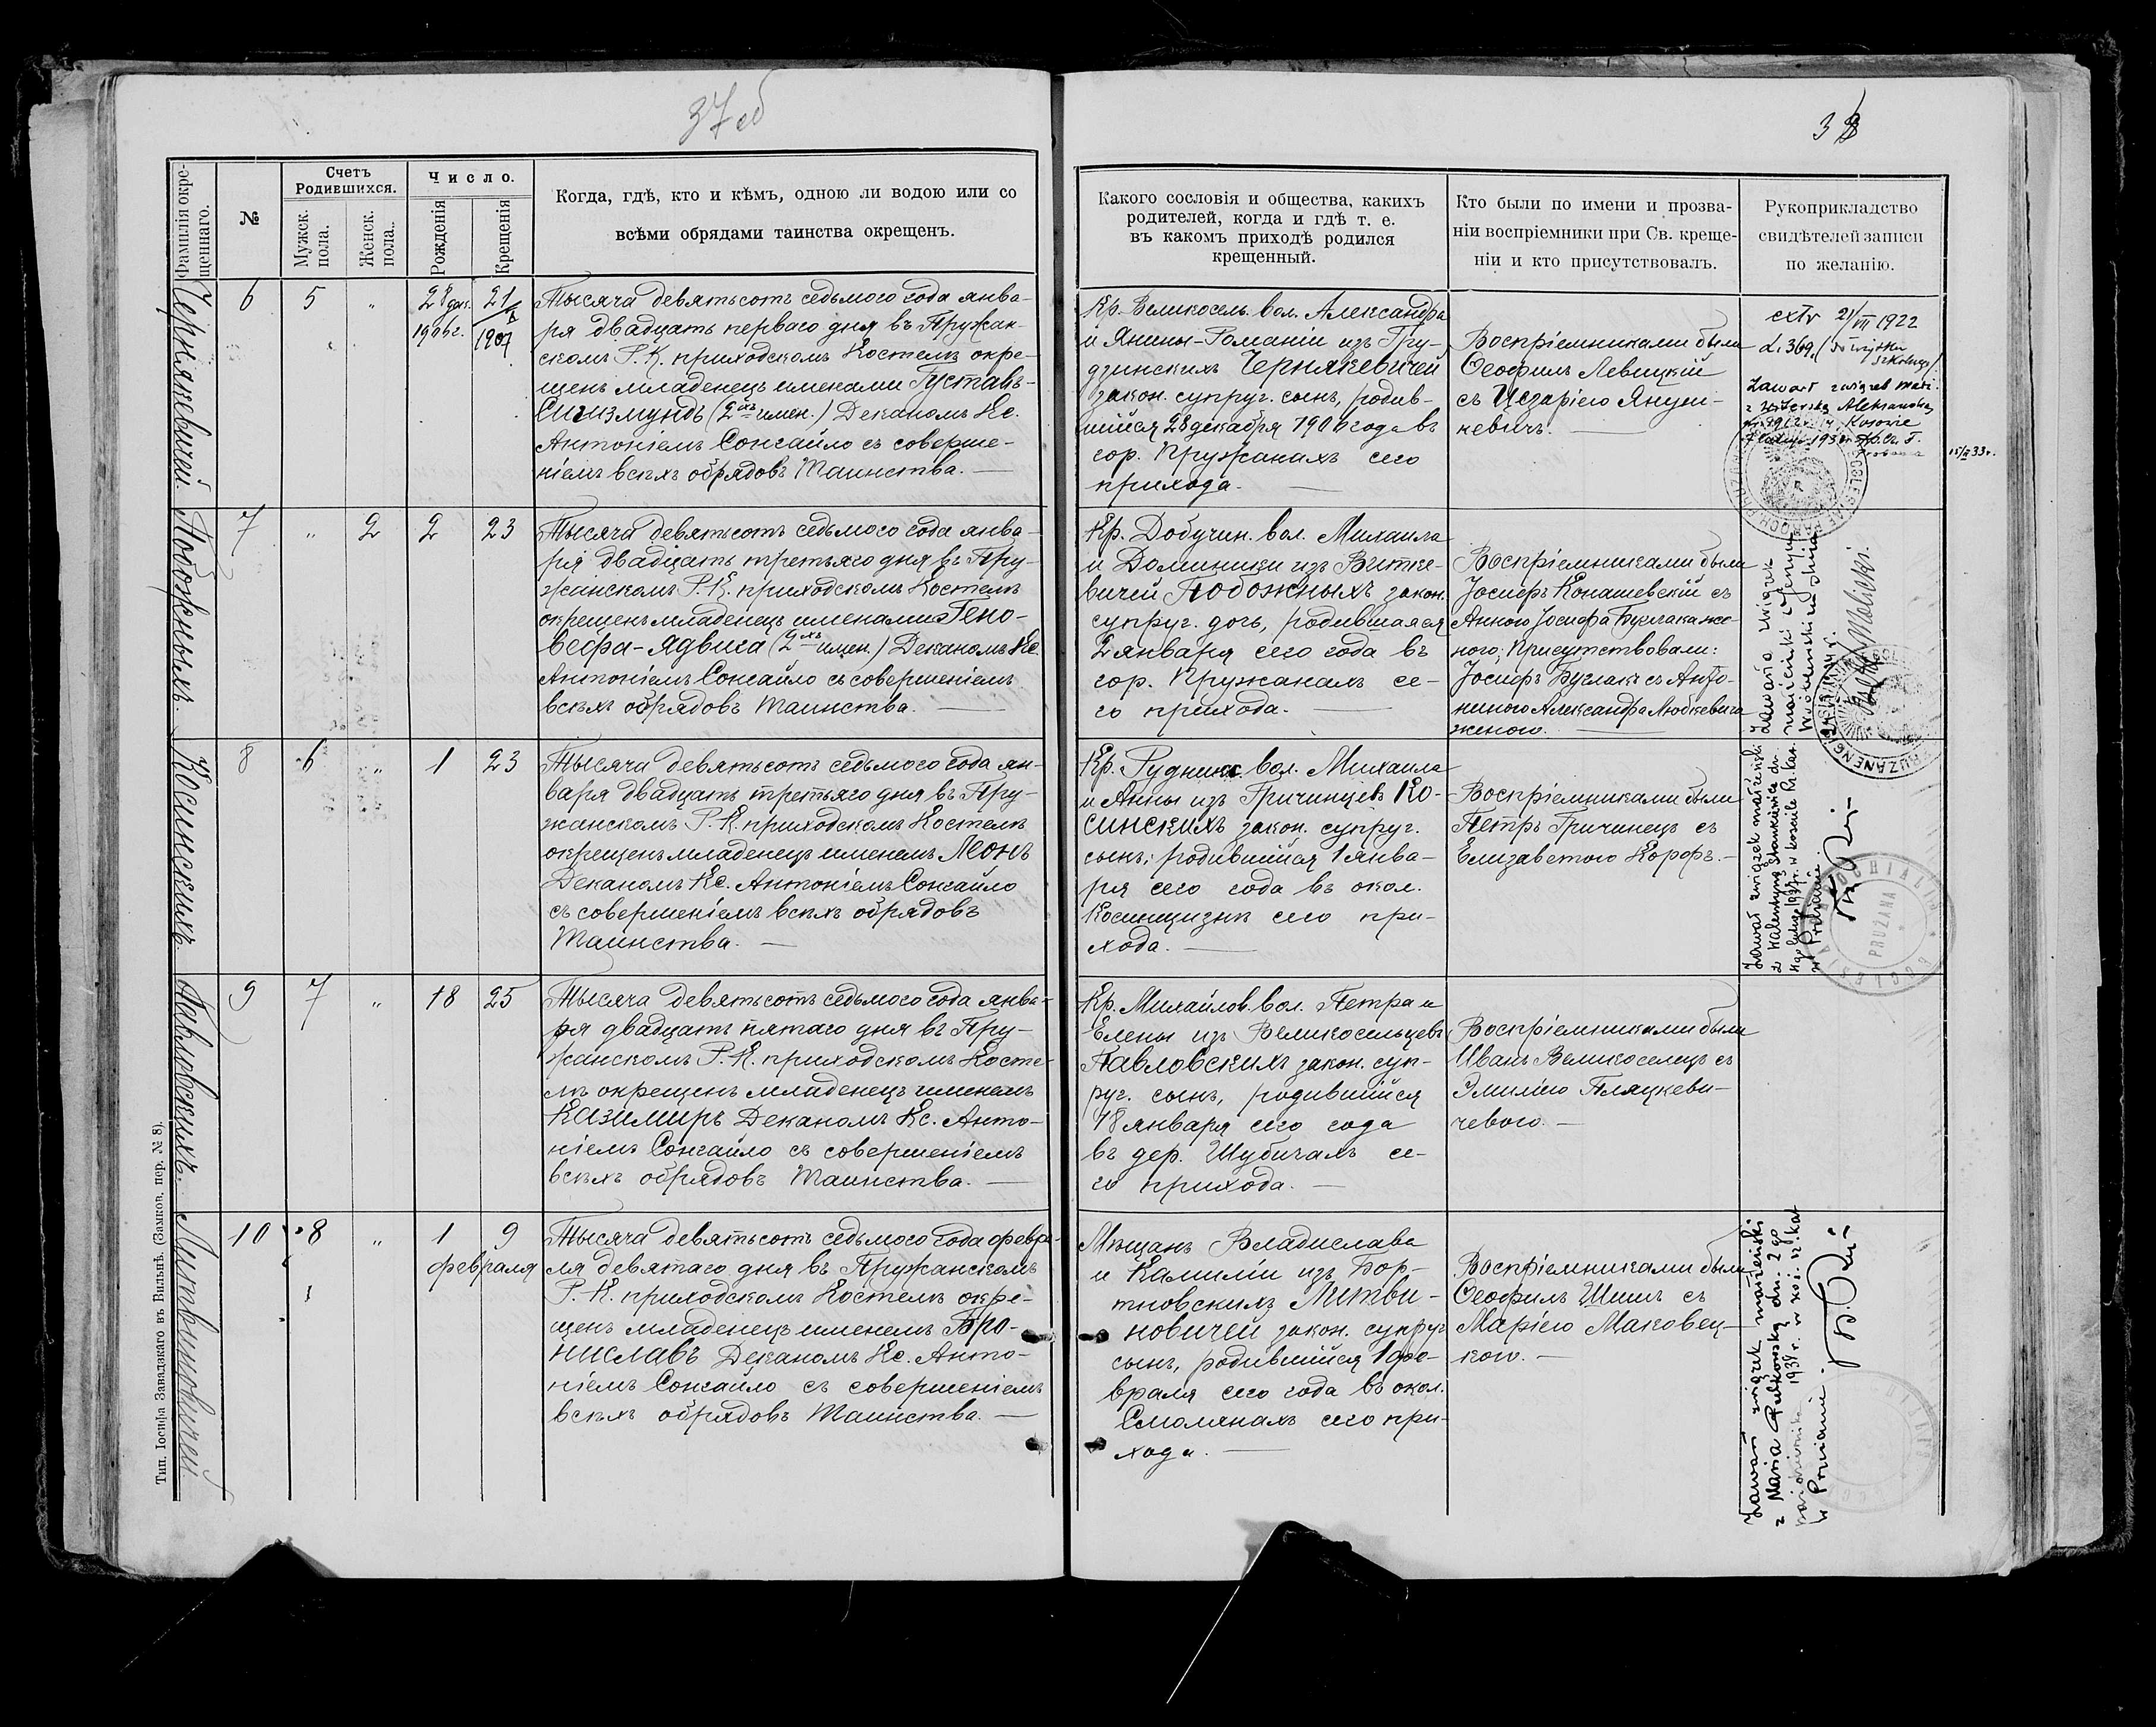 37об
38
Фамилія окре-
щеннаго.
№
Счетъ
Родившихся.
Мужск.
пола.
Женск.
пола.
Число.
Рожденія
Крещенія
Когда, гдѣ, кто и кѣмъ, одною ли водою или со
всѣми обрядами таинства окрещенъ.
Какого сословія и общества, какихъ
родителей, когда и гдѣ т. е.
въ какомъ приходѣ родился
крещенный.
Кто были по имени и прозва-
ніи воспріемники при Св. креще-
ніи и кто присутствовалъ.
Рукоприкладство
свидѣтелей записи
по желанію.
Чернякевичей.
6
5
"
28 дек.
1906 г.
21/I
1907
Тысяча девятьсотъ седьмого года янва-
ря двадцать перваго дня въ Пружан-
скомъ Р. К. приходскомъ Костелѣ окре-
щенъ младенецъ именами Густавъ-
Сигизмундъ (2хъ имен.) Деканомъ Кс.
Антоніемъ Сонгайло съ соверше-
ніемъ всѣхъ обрядовъ Таинства.
Кр. Великосел. вол. Александра
и Янины-Романіи изъ Гру-
дзинскихъ Чернякевичей
закон. супруг. сынъ, родив-
шійся 28 декабря 1906 года въ
гор. Пружанахъ сего
прихода.
Воспріемниками были
Ѳеофилъ Левицкій
съ Цезаріею Януш-
кевичъ.
extr 21/VII 1922
d. 369.
Zawarł związek małż.
15/II 33 r.
Побожныхъ.
7
"
2
2
23
Тысяча девятьсотъ седьмого года янва-
ря двадцать третьяго дня въ Пру-
жанскомъ Р. К. приходскомъ Костелѣ
окрещенъ младенецъ именами Гено-
вефа-Ядвига (2хъ имен.) Деканомъ Кс.
Антоніемъ Сонгайло съ совершеніемъ
всѣхъ обрядовъ Таинства.
Кр. Добучин. вол. Михаила
и Доминики изъ Витке-
вичей Побожныхъ закон.
супруг. дочь, родившаяся
2 января сего года въ
гор. Пружанахъ се-
го прихода.
Воспріемниками были
Іосифъ Конашевскій съ
Анною Іосифа Буглака же-
ною; Присутствовали:
Іосифъ Буглакъ съ Анто-
ниною Александра Любкевича
женою.
Zawarła związek
małżeński
Косинскихъ.
8
6
"
1
23
Тысяча девятьсотъ седьмого года ян-
варя двадцать третьяго дня въ Пру-
жанскомъ Р. К. приходскомъ Костелѣ
окрещенъ младенецъ именемъ Леонъ
Деканомъ Кс. Антоніемъ Сонгайло
съ совершеніемъ всѣхъ обрядовъ
Таинства.
Кр. Рудник. вол. Михаила
и Анны изъ Гричинцевъ Ко-
синскихъ закон. супруг.
сынъ, родившійся 1 янва-
ря сего года въ окол.
Косинщизнѣ сего при-
хода.
Воспріемниками были
Петръ Гричинецъ съ
Елизаветою Корфъ.
Zawarł związek małżeński
z Walentyną Stankiewicz dn.
4go lutego 1937 r. w kościele Rz. kat.
w Prużanie.
PRUZANA
Павловскихъ.
9
7
"
18
25
Тысяча девятьсотъ седьмого года янва-
ря двадцать пятаго дня въ Пру-
жанскомъ Р. К. приходскомъ Косте-
лѣ окрещенъ младенецъ именемъ
Казимиръ Деканомъ Кс. Анто-
ніемъ Сонгайло съ совершеніемъ
всѣхъ обрядовъ Таинства.
Кр. Михайлов. вол. Петра и
Елены изъ Великосельцевъ
Павловскихъ закон. суп-
руг. сынъ, родившійся
18 января сего года
въ дер. Шубичахъ се-
го прихода.
Воспріемниками были
Иванъ Великоселецъ съ
Эмиліею Пляцкеви-
чевою.
Литвиновичей
10
8
"
1
9
февраля
Тысяча девятьсотъ седьмого года февра-
ля девятаго дня въ Пружанскомъ
Р. К. приходскомъ Костелѣ окре-
щенъ младенецъ именемъ Бро-
ниславъ Деканомъ Кс. Анто-
ніемъ Сонгайло съ совершеніемъ
всѣхъ обрядовъ Таинства.
Мѣщанъ Владислава
и Камиліи изъ Бор-
тновскихъ Литви-
новичей закон. супруг
сынъ, родившійся 1 фе-
враля сего года въ окол.
Смолянахъ сего при-
хода.
Воспріемниками были
Ѳеофилъ Шишъ съ
Маріею Маковец-
кою.
Zawarł związek małżeński
z Marią Rutkowską dn. 2go
października 1937 r. w koś. rz. kat
w Prużanie.
Тип. Іосифа Завадзкаго въ Вильнѣ. (Замков. пер. № 8).